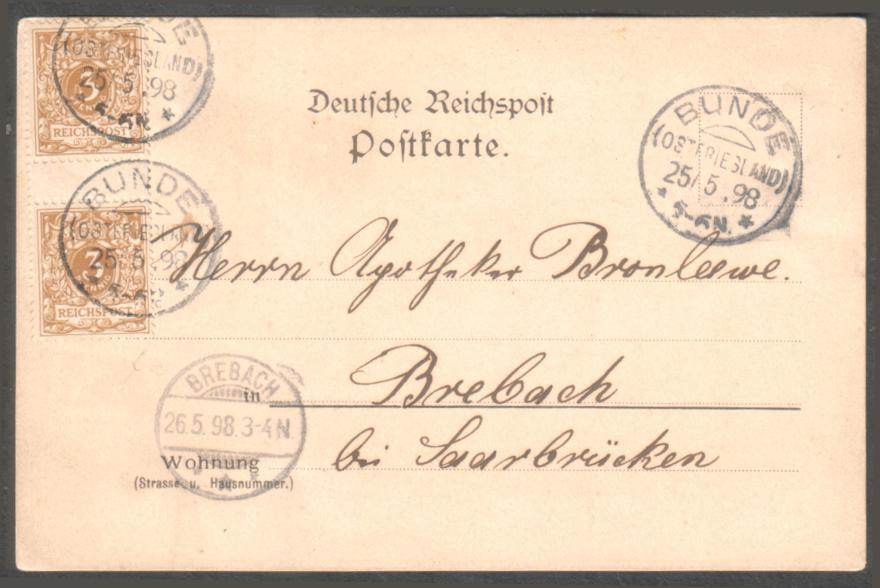 Deutsche Reichspost
Postkarte.
3
REICHSPOST
BUNDE
(OSTFRIESLAND)
25/5.98
5-6N.
BUNDE
(OSTFRIESLAND)
25/5.98
5-6N.
3
REICHSPOST
BUNDE
(OSTFRIESLAND)
25/5.98
Herrn Apotheker
in Brebach
BREBACH
26.5.98.3-4N
Wohnung bei Saarbrücken
(Strasse u. Hausnummer.)